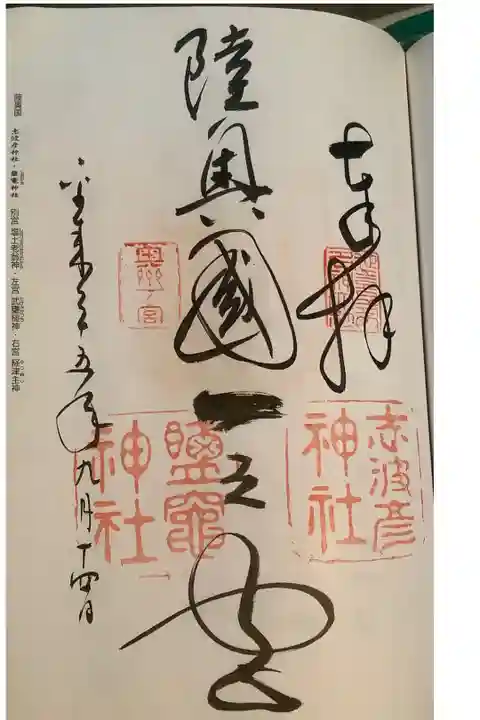 奉拝
志波彦
神社
陸奥國一之宮
奥州一ノ宮
鹽竈
神社
平成二十五年九月十四日
陸奥国 志波彦神社・鹽竈神社 別宮 塩土老翁神・左宮 武甕槌神・右宮 経津主神